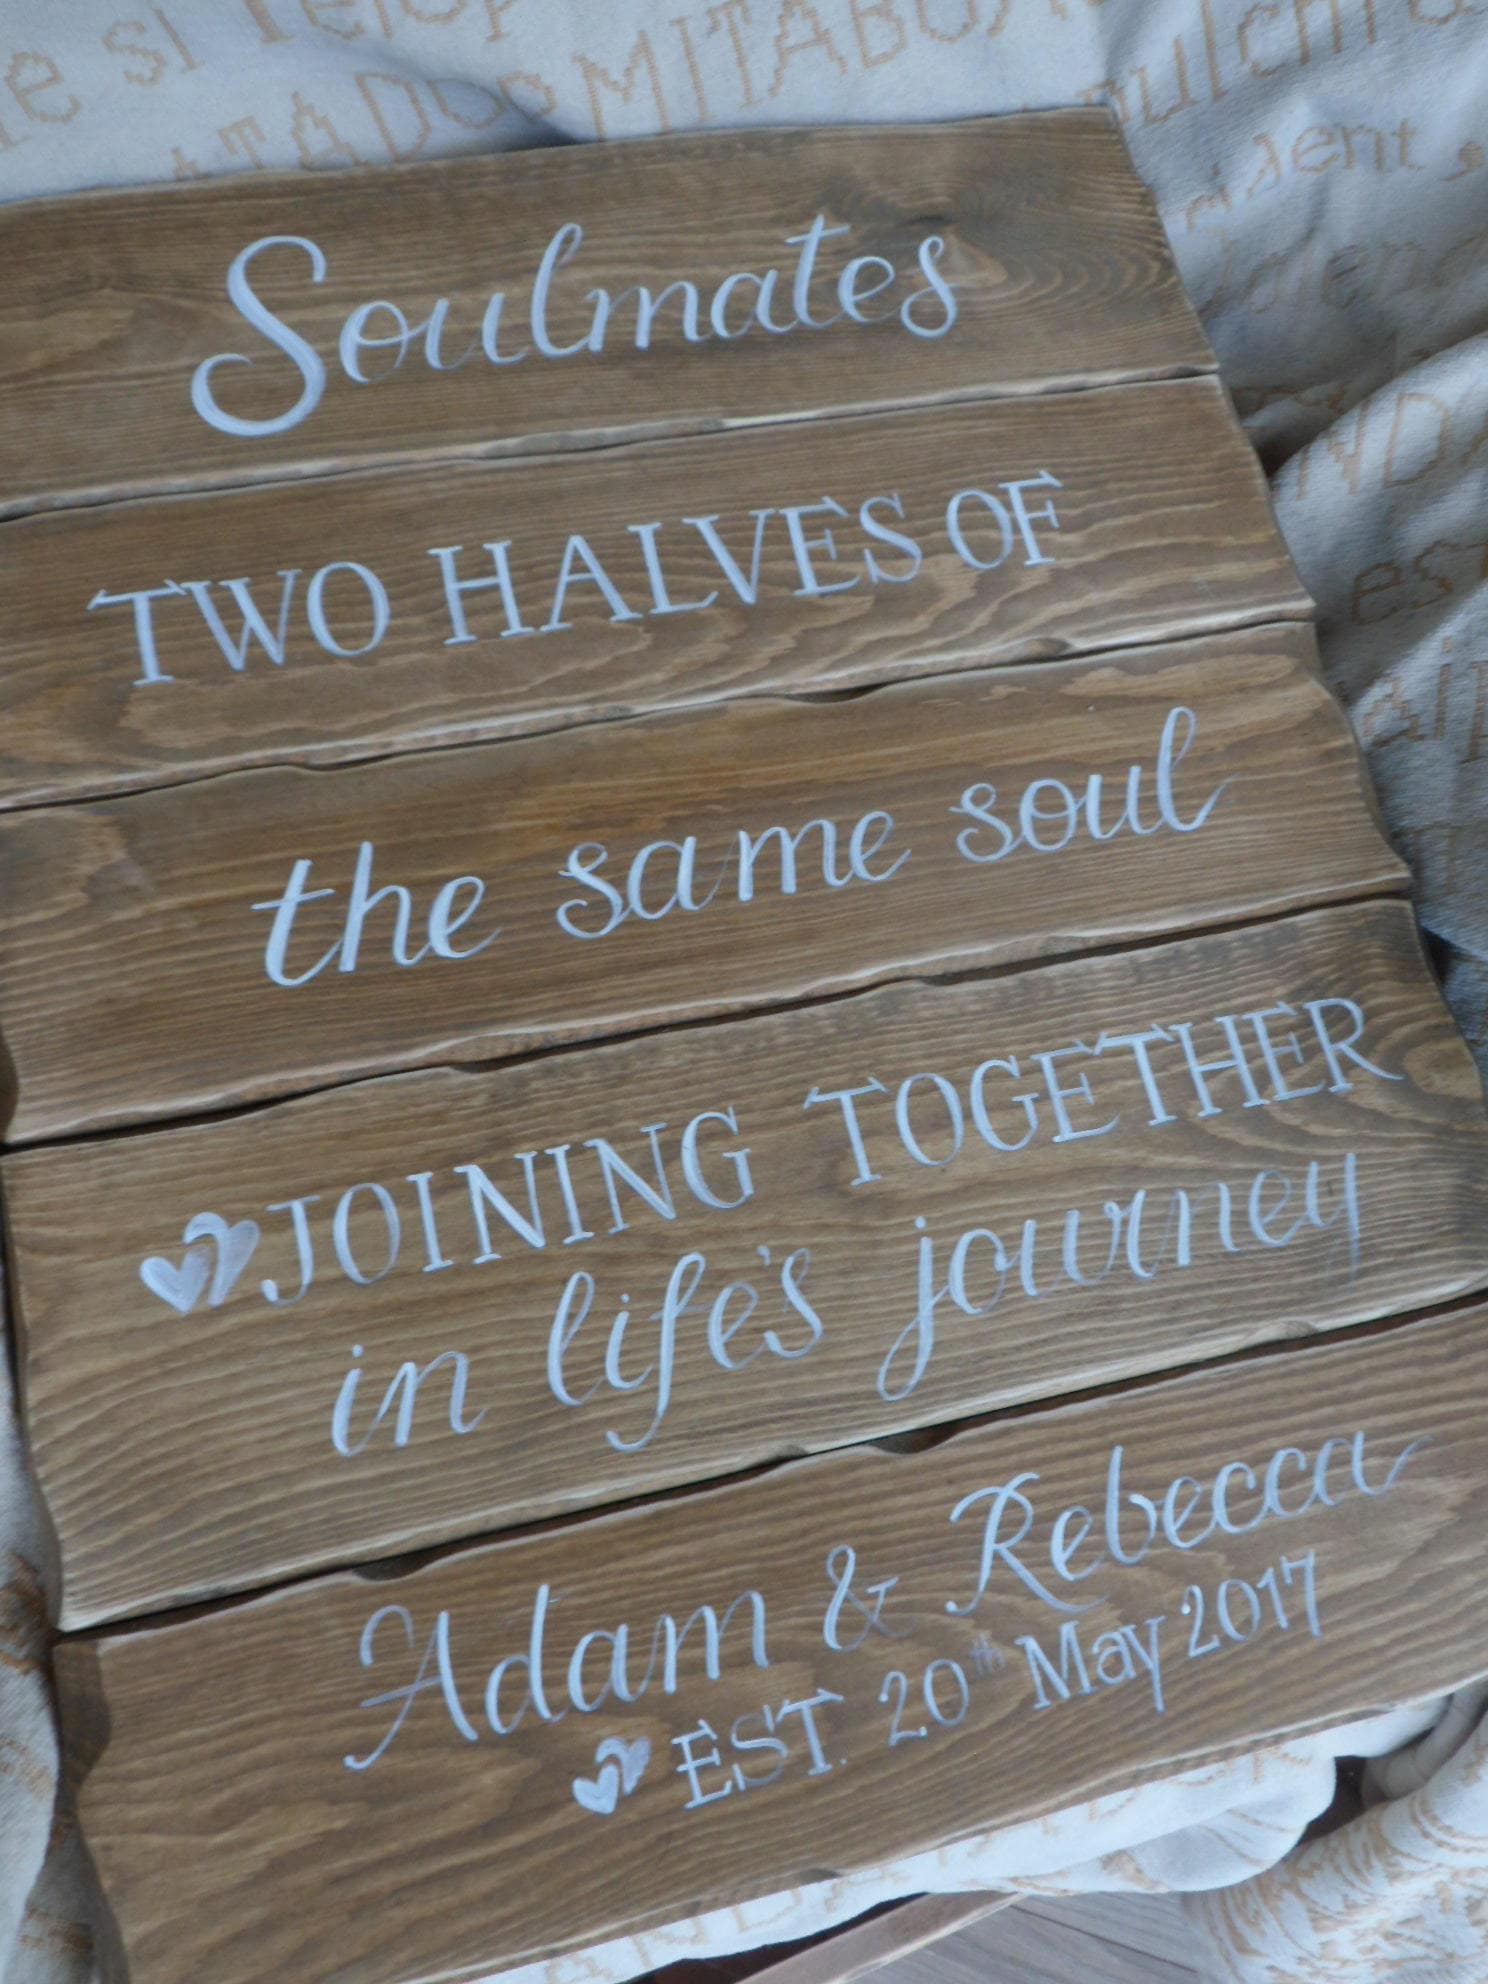 Soulmates
TWO HALVES OF
the same soul
JOINING TOGETHER
in life's journey
Adam & Rebecca
EST. 20th May 2017